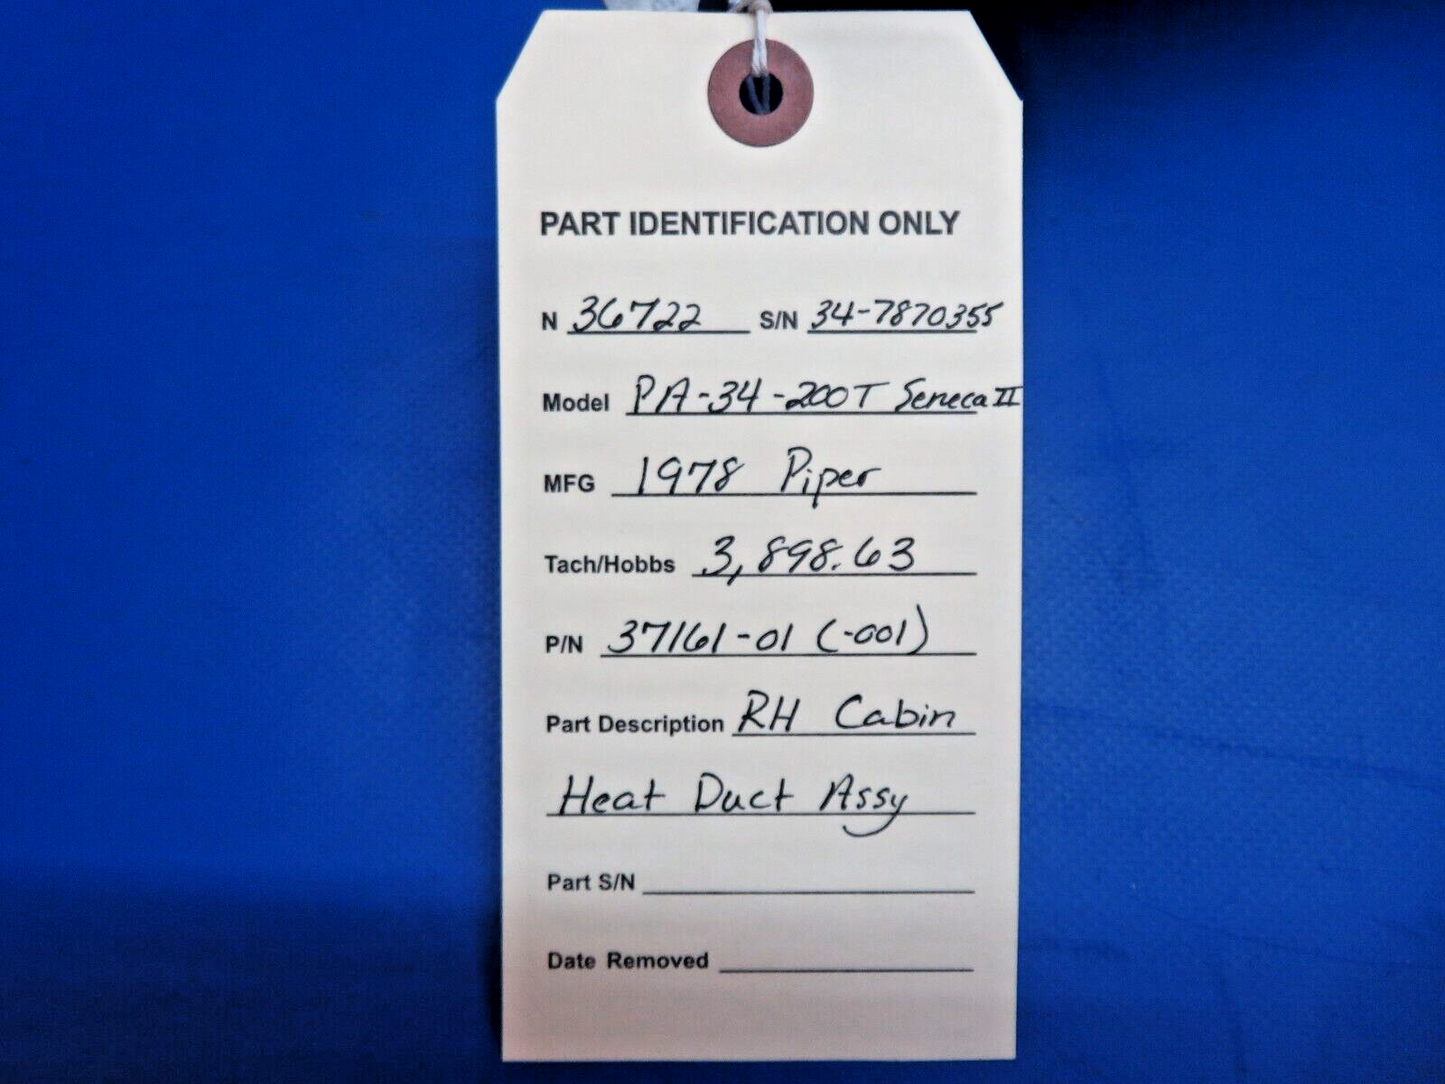 PART IDENTIFICATION ONLY
N 36722 S/N 34-7870355
Model PA-34-200T Seneca II
MFG 1978 Piper
Tach/Hobbs 3,898.63
P/N 37161-01 (-001)
Part Description RH Cabin
Heat Duct Assy
Part S/N
Date Removed